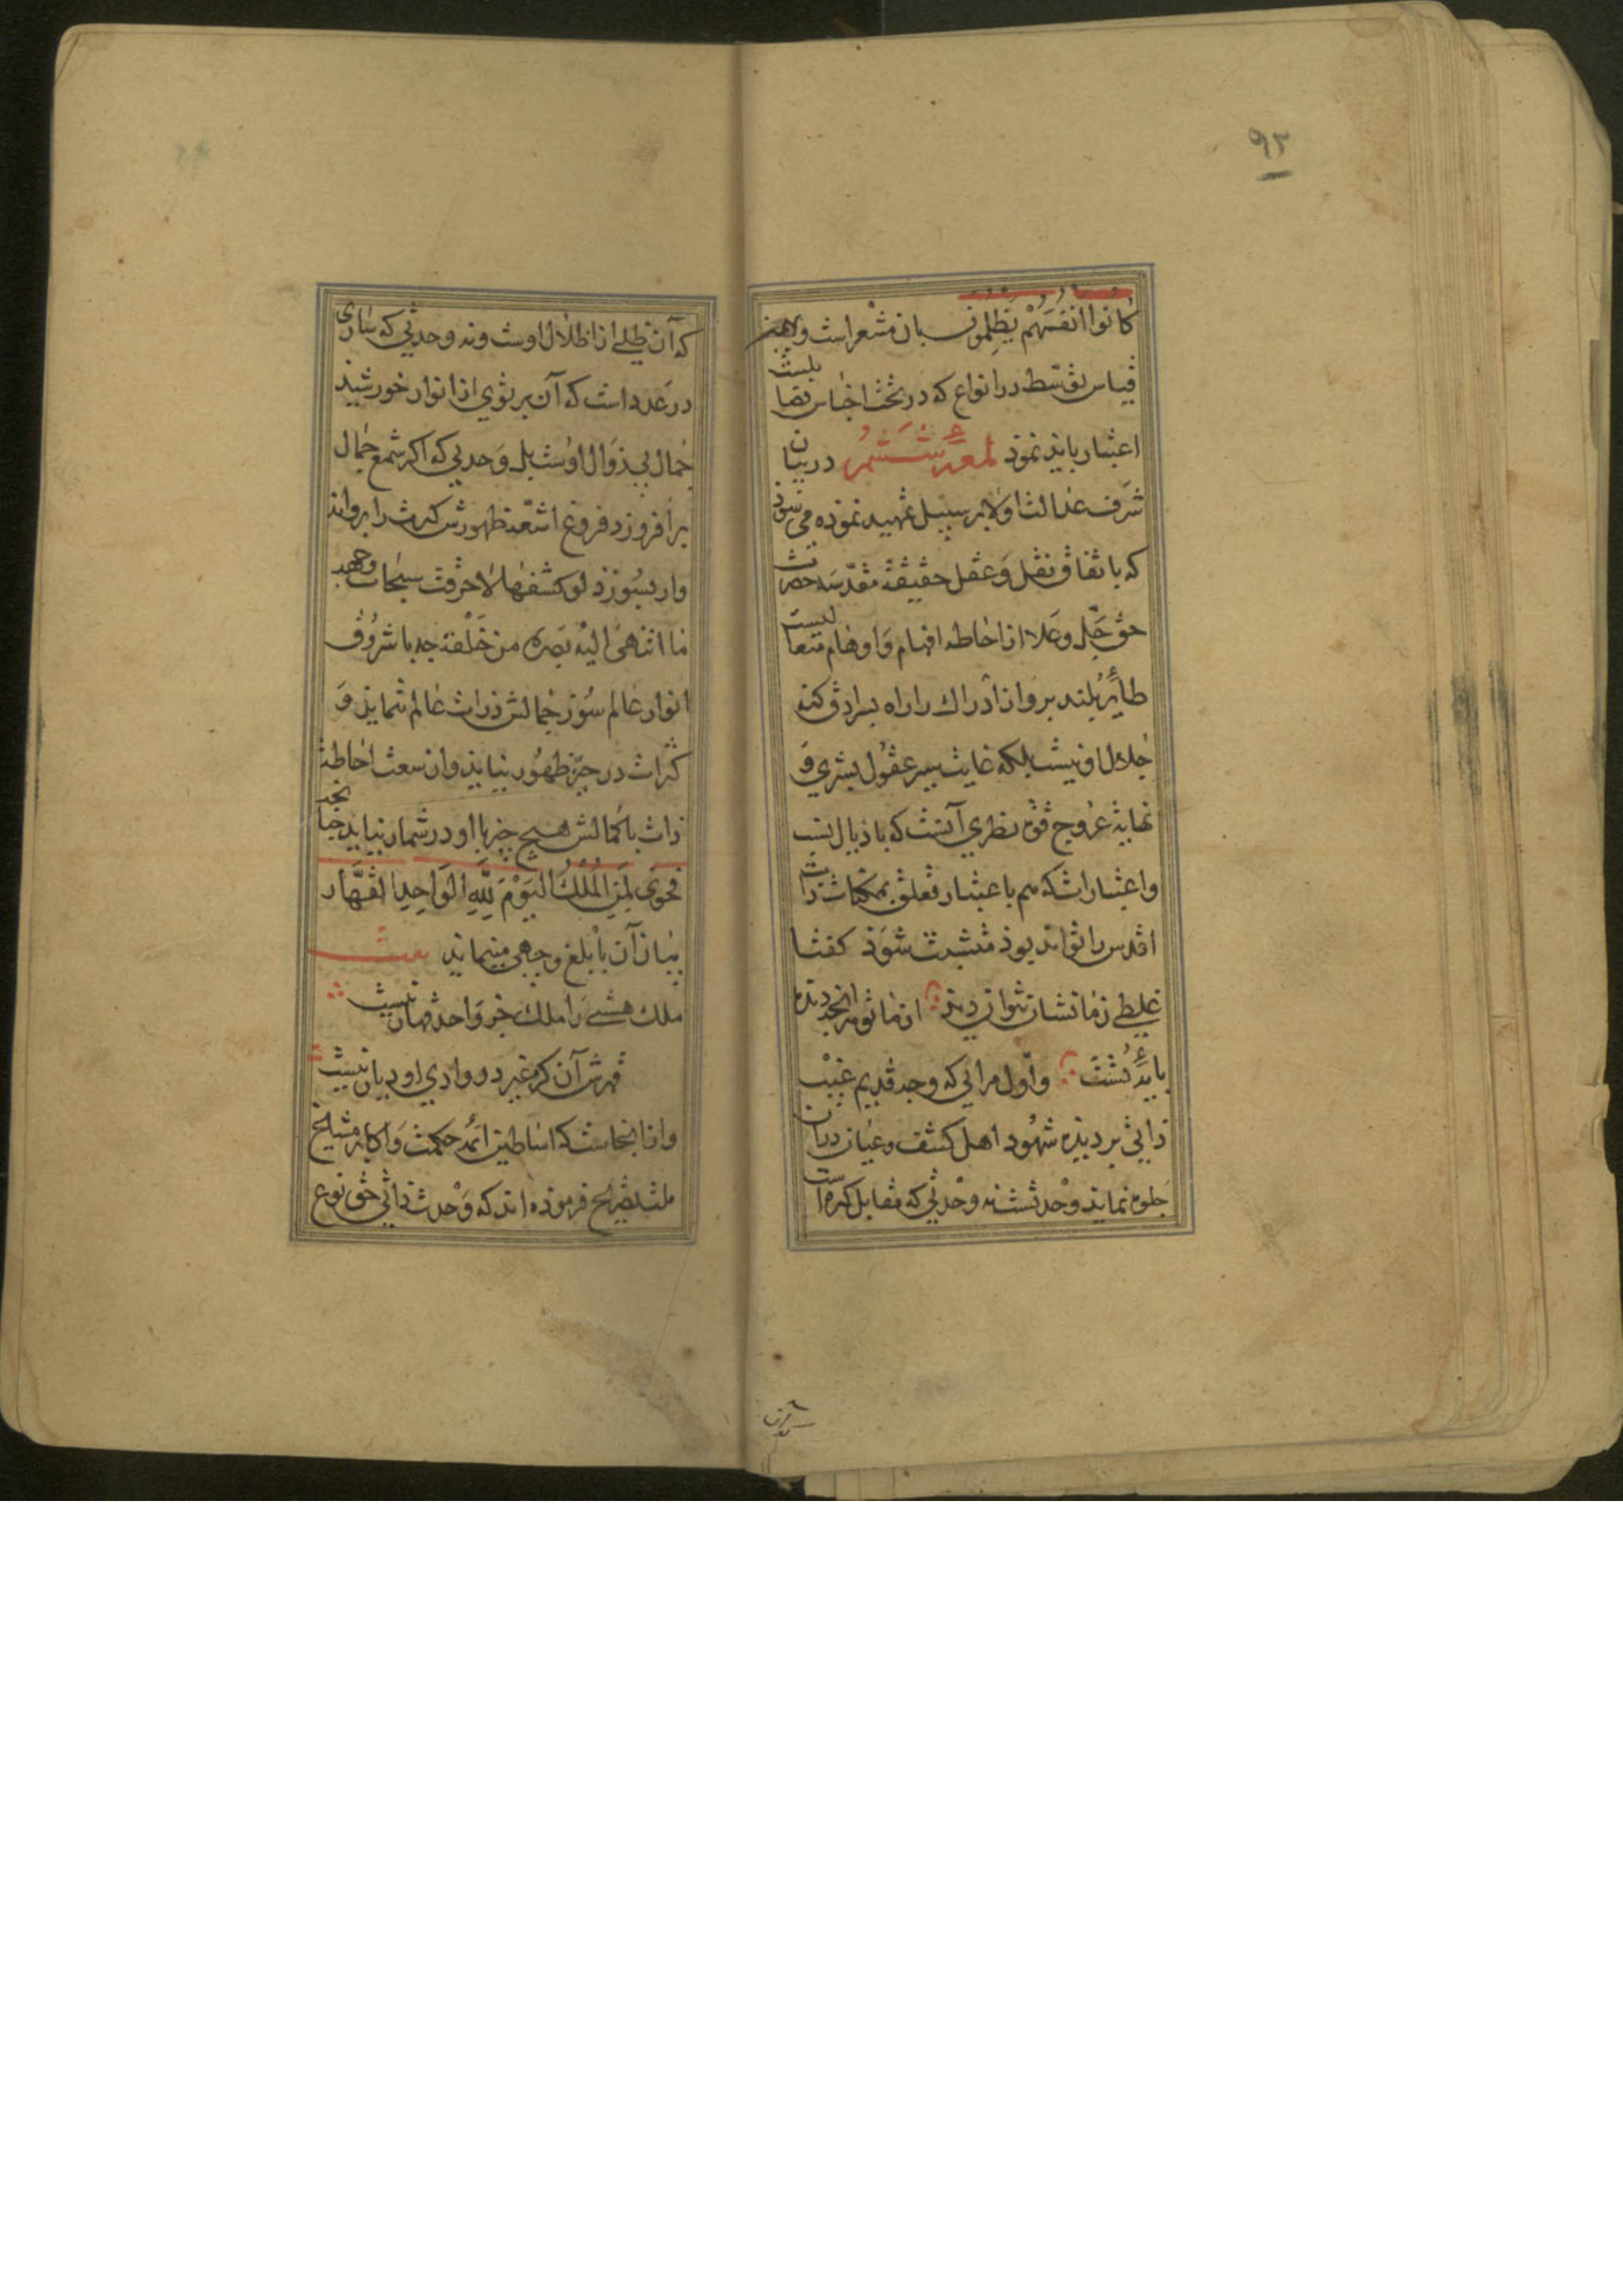 ۹۲
كانوا انفسهم يظلمون بان مشعر است و
قياس توسط در انواع كه در تحت اجناس فضايلست
اعتبار بايد نمود لمعهٔ ششم در بيان
شرف عدالت اولا بر سبيل تمهيد نموده می شود
كه باتفاق نقل و عقل حقيقة مقدسه حضرت
حق جل وعلا از احاطه افهام و اوهام متعاليست
طاير بلند پرواز ادراك را راه بسرادق كنه
جلال او نيست بلكه غايت سير عقول بشري و
نهاية عروج قوة نظري آنست كه باذيال نسب
واعتبارات كه هم باعتبار تعلق بممكنات ذات
اقدس را تواند بود متشبث شود كفتا
غلطي زما نشان نتوان ديد از ما تو هر آنچه ديدهٔ
پايهٔ تست واول مراتي كه وجه قديم غيب
ذاتي بر ديده شهود اهل كشف وعيان در آن
جلوه نمايد وحدتست نه وحدتي كه مقابل كثرة است
كه آن ظلي از اظلال اوست ونه وحدتي كه ساري
در عدد است كه آن پرتوي از انوار خورشيد
جمال بيزوال اوست بل وحدتي كه اكر شمع جمال
برافروزد فروغ اشعه ظهورش كثرت را پروانه
وار بسوزد لو كشفها لاحرقت سبحات وجهه
ما انتهى اليه بصره من خلقه چه با شروق
انوار عالم سوز جمالش ذرات عالم ننمايد و
كثرات در حيز ظهور نيايد واز سعت احاطت
ذات باكمالش هيچ چيز با او در شمار نيايد چنانچه
فحوى لمن الملك اليوم لله الواحد القهار
بيان آن بابلغ وجهی مينمايد بيت
ملك هستي را ملك جز واحد قهار نيست
قهرش آن كز غير در وادي او ديار نيست
واز اينجاست كه اساطين ائمه حكمت و اكابر مشايخ
ملت تصريح فرموده اند كه وحدت ذاتي حق نوع